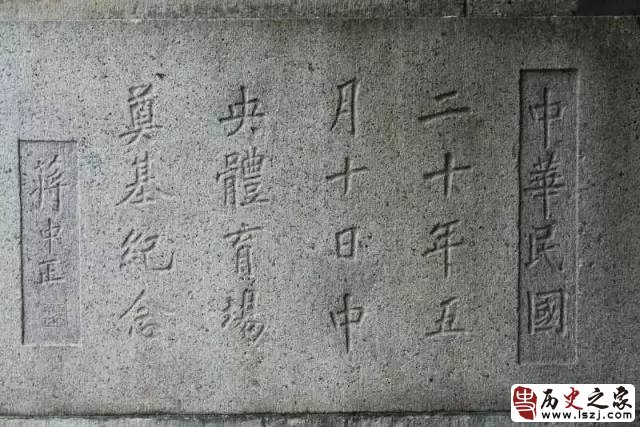 中華民國
二十年五
月十日中
央體育場
奠基紀念
蔣中正
历史之家
www.lszj.com